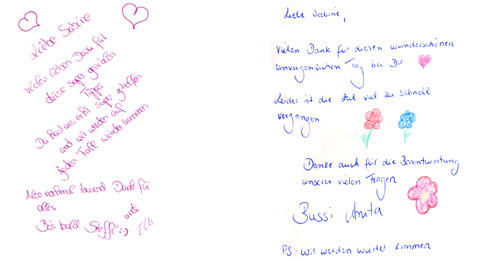 Liebe Sabine
vielen lieben Dank für
deine super genialen
Tipps
Du hast uns echt super geholfen
und wir werden auf
jeden Fall wieder kommen
Also nochmal tausend Dank für
alles
Bis bald Steffi :-) und
Liebe Sabine,
Vielen Dank für diesen wunderschönen
unvergesslichen Tag bei Dir
Leider ist die Zeit viel zu schnell
vergangen.
Danke auch für die Beantwortung
unserer vielen Fragen
Bussi Anita
PS: Wir werden wieder kommen